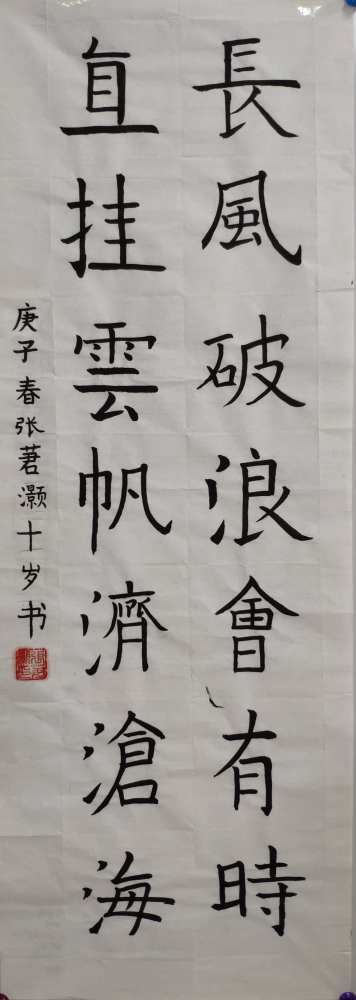 長風破浪會有時
直挂雲帆濟滄海
庚子春张莙灏十岁书